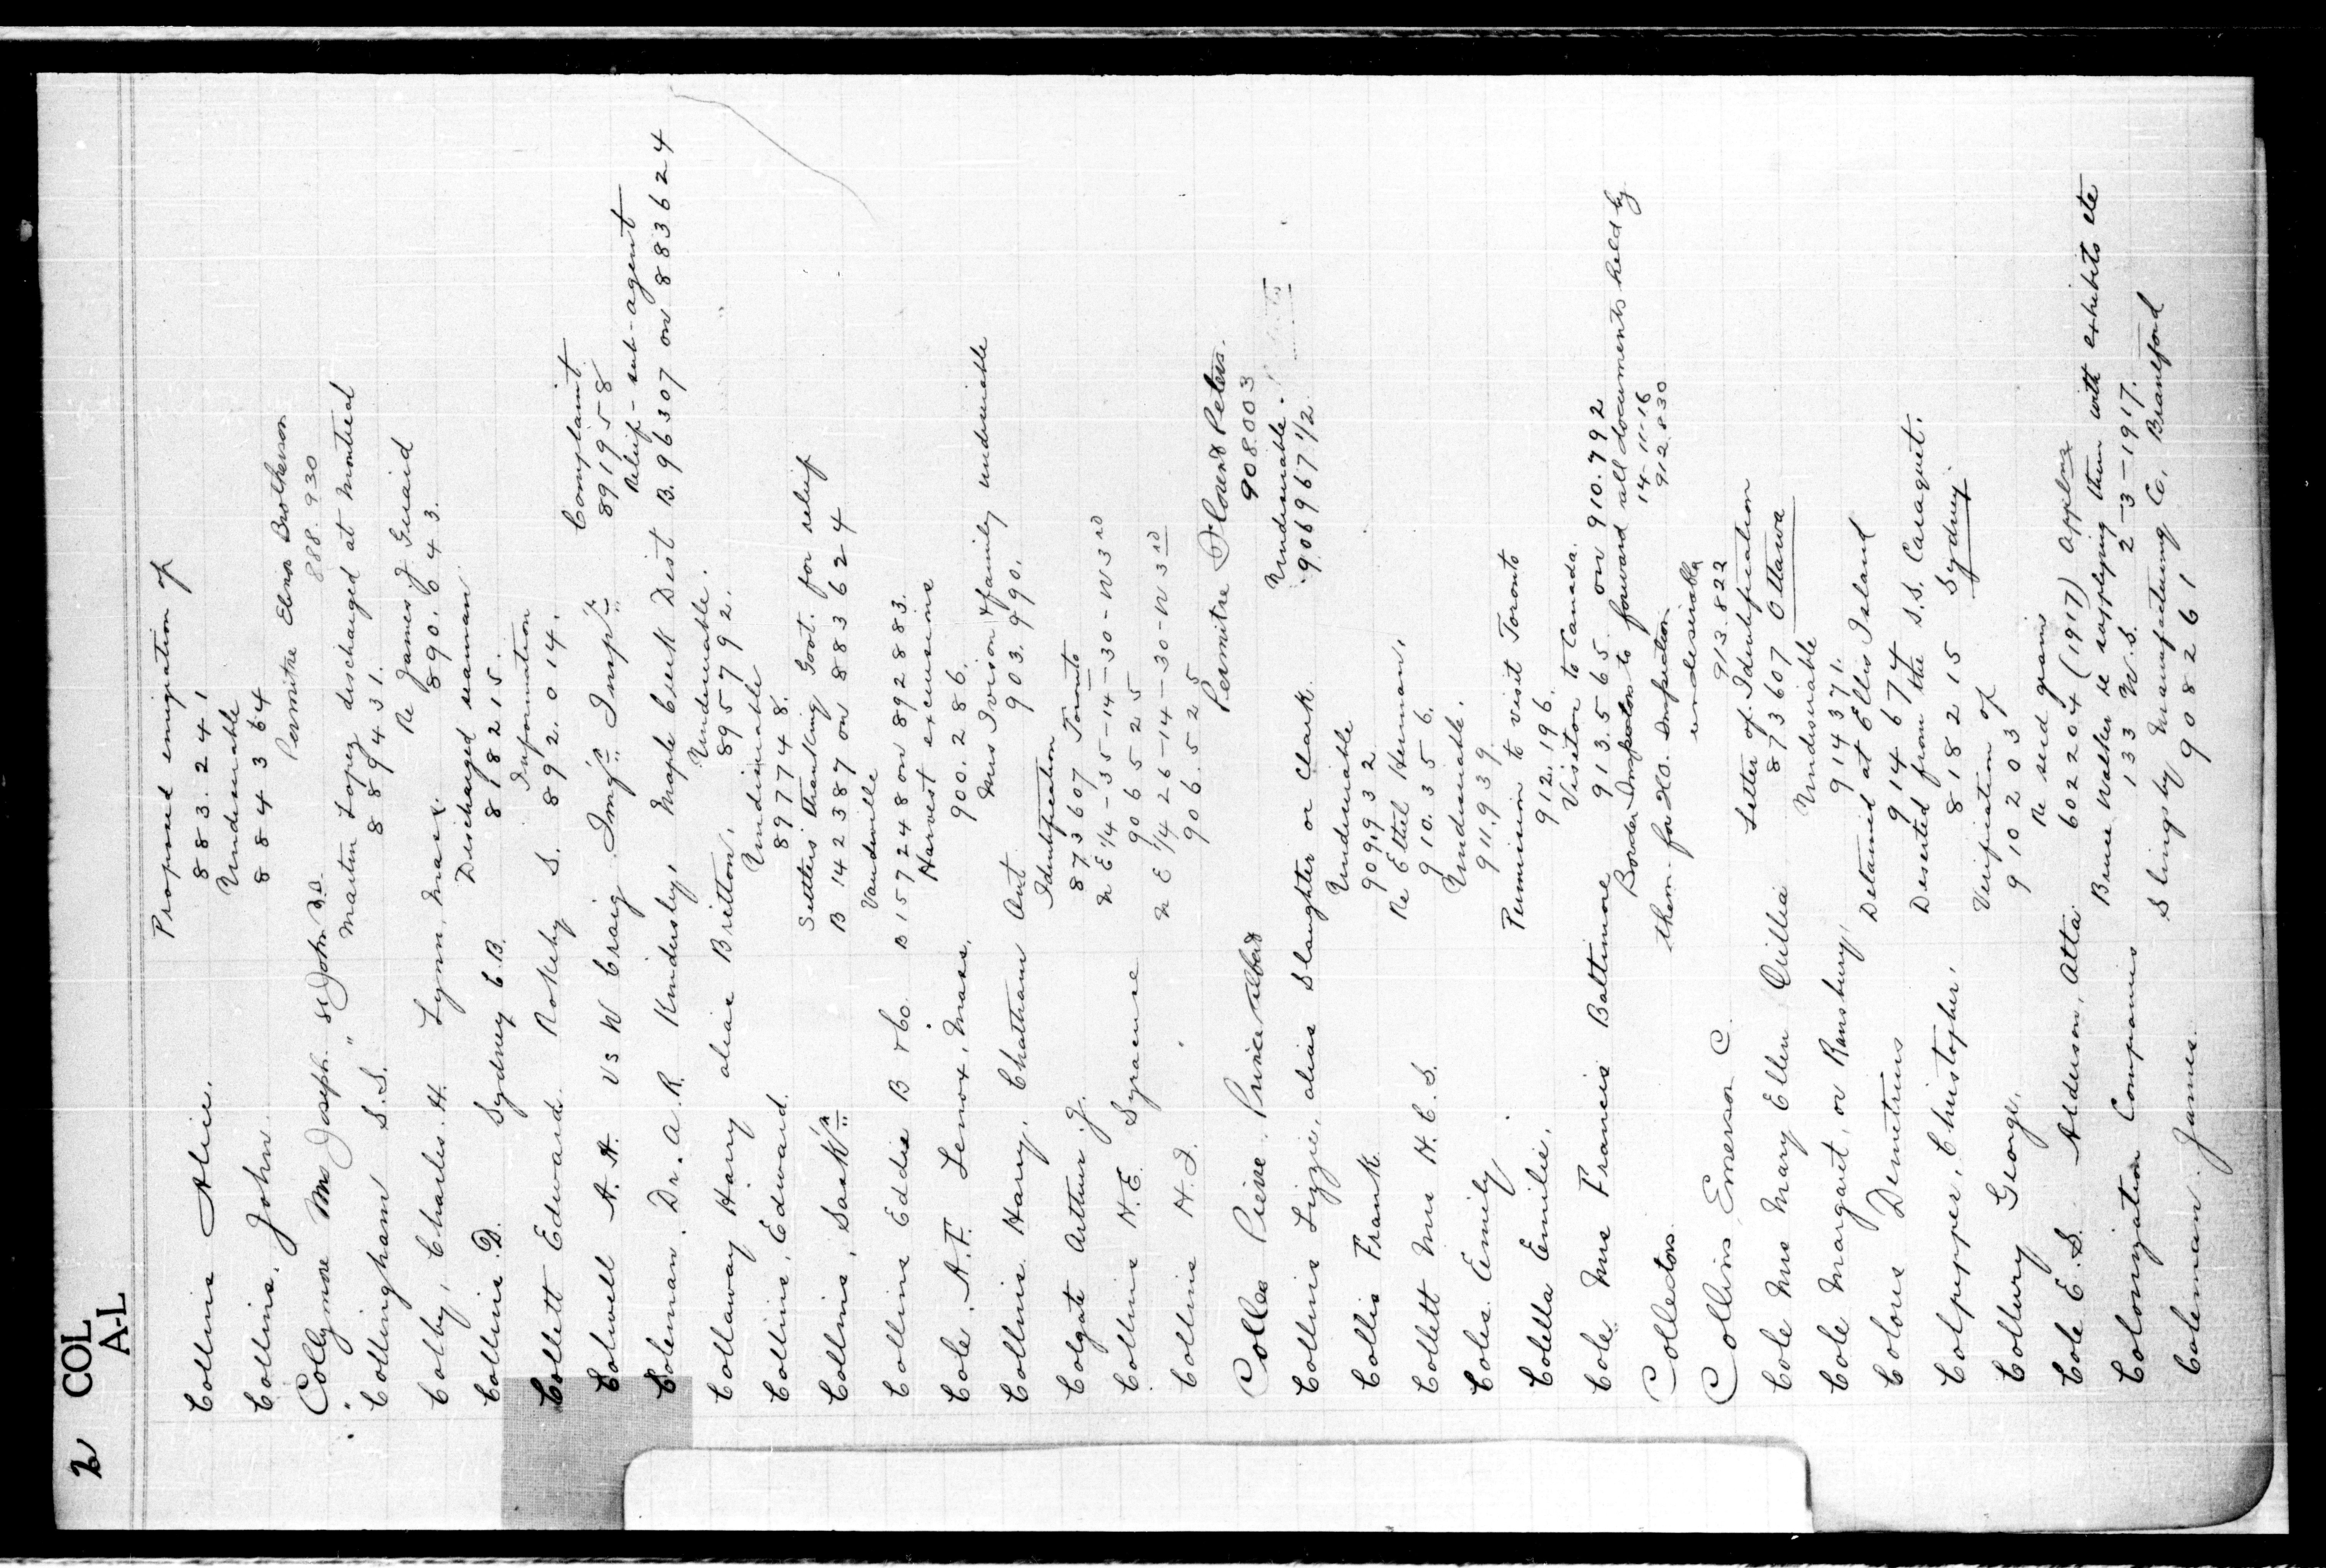 2 COL
A-L
Collins Alice. Proposed emigration of
883.241
Collins, John Undesirable
884364
Collymore Mrs Joseph St John N.B. Permitre Elnor Brotherson
" " 888.930
Collingham S.S. Martin Lopez discharged at Montreal
889431.
Colby, Charles. H. Lynn, Mass. Re James J Guraid
890.643.
Collins. D. Sydney C.B. Discharged seaman
818215.
Collett Edward. Rokeby S. Information
892.014.
Colwell A.H. vs W Craig Img'n Insp'r Complaint
891958
Coleman. Dr. A.R. Kindersley, Maple Creek Dist Relief - sub-agent
B.96307 on 883624
Collaway Harry alias Britton, Undesirable.
895792.
Collins, Edward. Undesirable
897748.
Collins, Sask'n Settlers thanking Govt. for relief
B 142387 on 883624
Collins Eddie B & Co. Vaudeville
B157248 on 892883.
Cole. A.F. Lenox, Mass. Harvest excursions
900.286.
Collins Harry. Chatham Ont Mrs Ivison & family undesirable
903.990.
Colgate Arthur J. Identification
873607 Toronto
Collins H.E. Syracuse N E 1/4-35-14-30-W 3RD
906525
Collins H.J. N E 1/4 26-14-30-W 3RD
906.525
Colles Pierre. Prince Albert Permitre Flound Peters.
908.003
Collins Lizzie, alias Slaughter or Clark. Undesirable.
906967 1/2
Collis Frank. Undesirable
909.932
Collett Mrs H.C.S. Re Ethel Herman.
910.356.
Coles. Emily Undesirable.
911.939.
Colella Emilie. Permission to visit Toronto
912.196.
Cole Mrs Francis Baltimore Visitor to Canada.
913.565 on 910.792
Collectors. Border Inspectors to forward all documents held by
them for HO. Inspection. 14-11-16
912.830
Collins, Emerson C. undesirable
913.822
Cole Mrs Mary Ellen Orillia Letter of Identification
873607 Ottawa
Cole Margaret, or Ransbury. Undesirable
914371.
Colous Demetrius Detained at Ellis Island
914674
Colpupper, Christopher. Deserted from the S.S. Caraquet.
818215 Sydney.
Collury George. Verification of
910203
Cole E.S. Alderson, Alta. Re seed grain
602204 (1917) Applns
Colonization Companies Bruce Walker re supplying them with exhibits etc
133 W.S. 2-3-1917.
Coleman. James. Slingsby Manufacturing Co. Brantford
908261